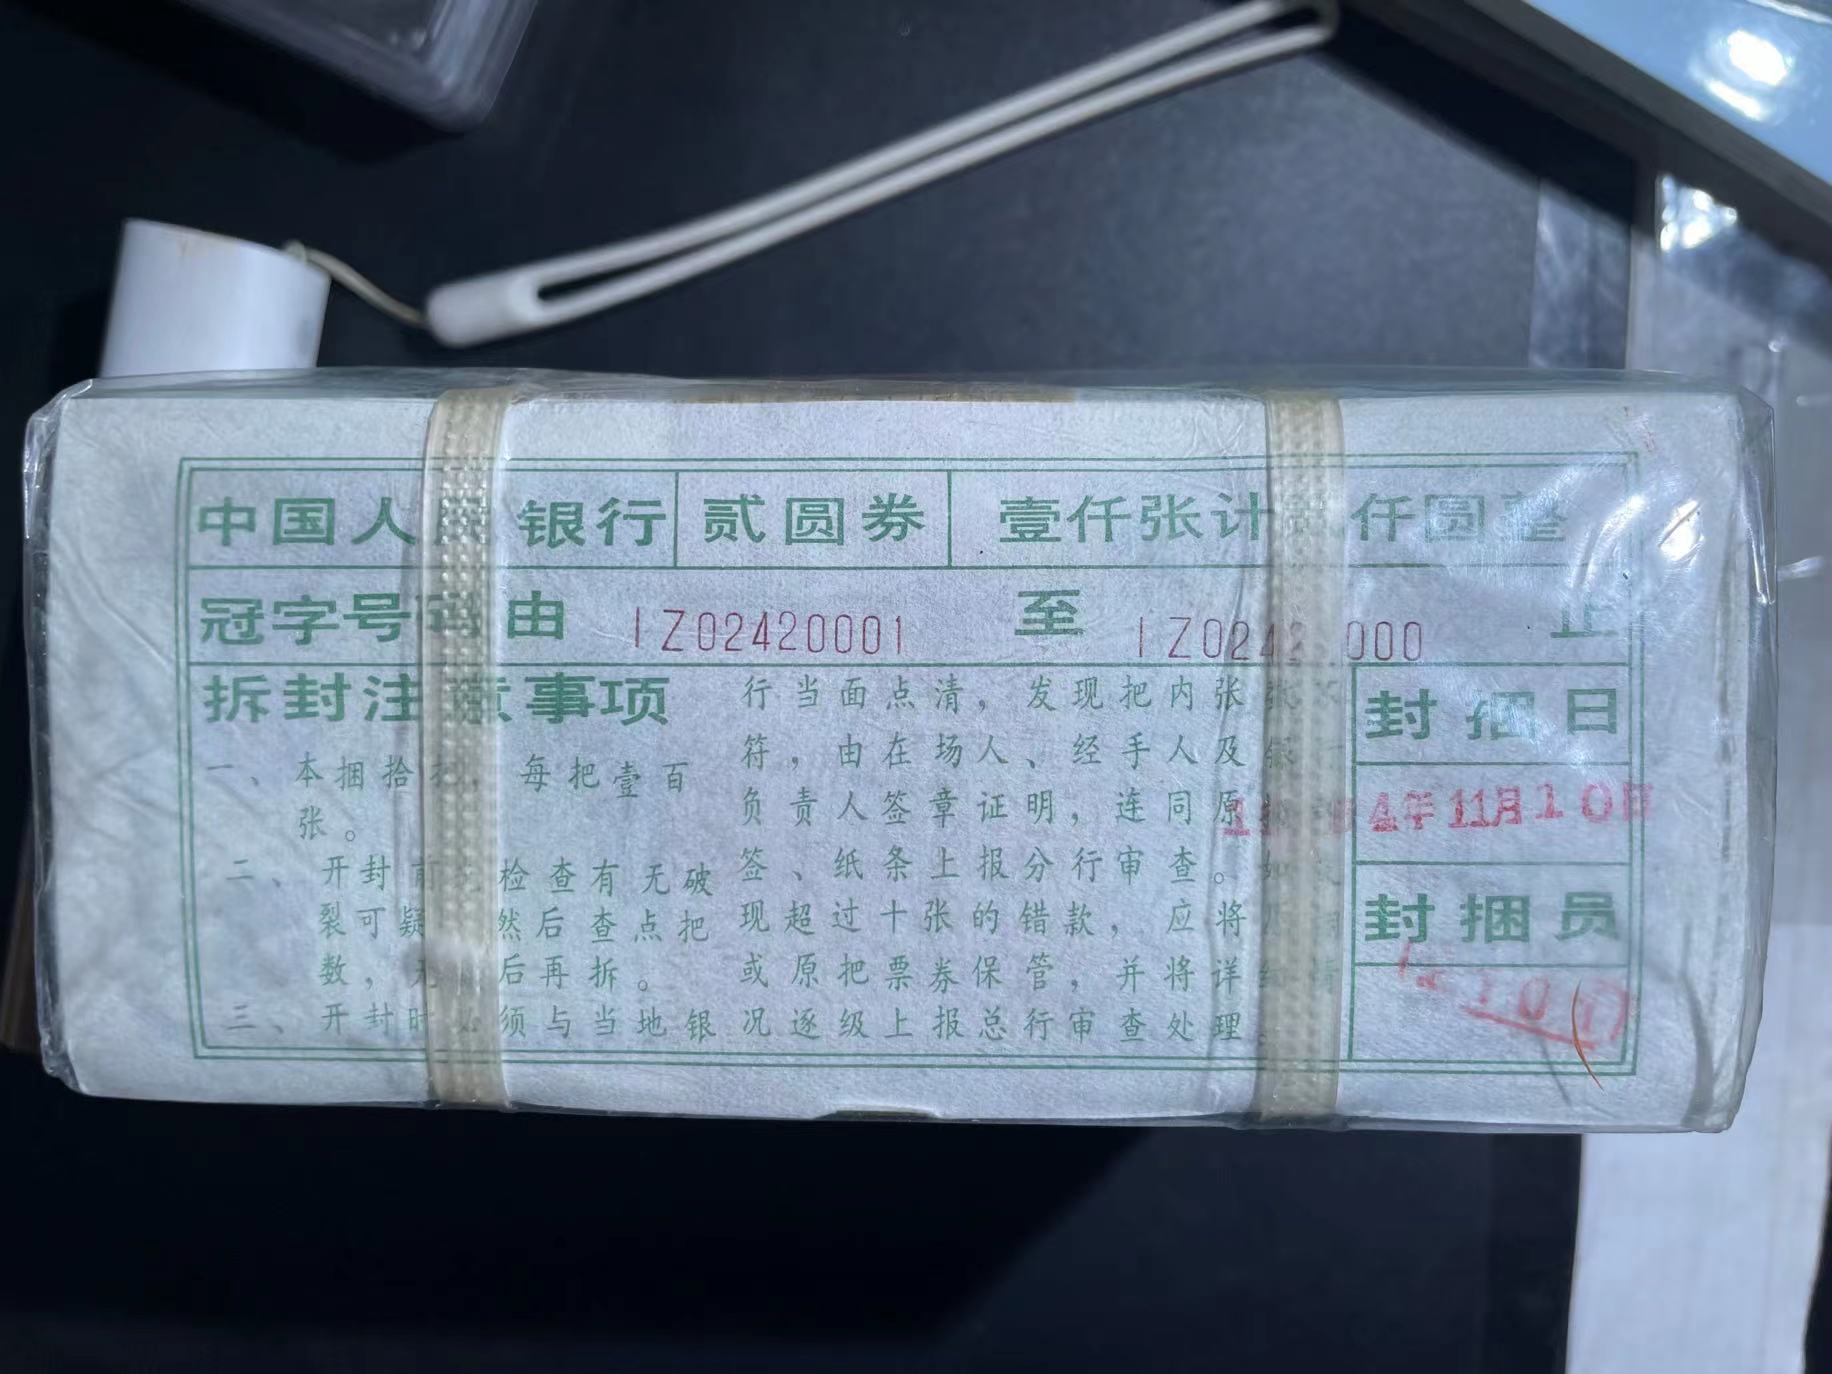 中国人民银行 贰圆券 壹仟张计贰仟圆整
冠字号码由 IZ02420001 至 IZ0242 000 止
拆封注意事项
一、本捆拾把，每把壹百
张。
二、开封前 检查有无破
裂可疑 然后查点把
数，无 后再拆。
三、开封时必须与当地银
行当面点清，发现把内张张
符，由在场人、经手人及银
负责人签章证明，连同原
签、纸条上报分行审查。如
现超过十张的错款，应将
或原把票券保管，并将详细
况逐级上报总行审查处理。
封捆日
4年11月10日
封捆员